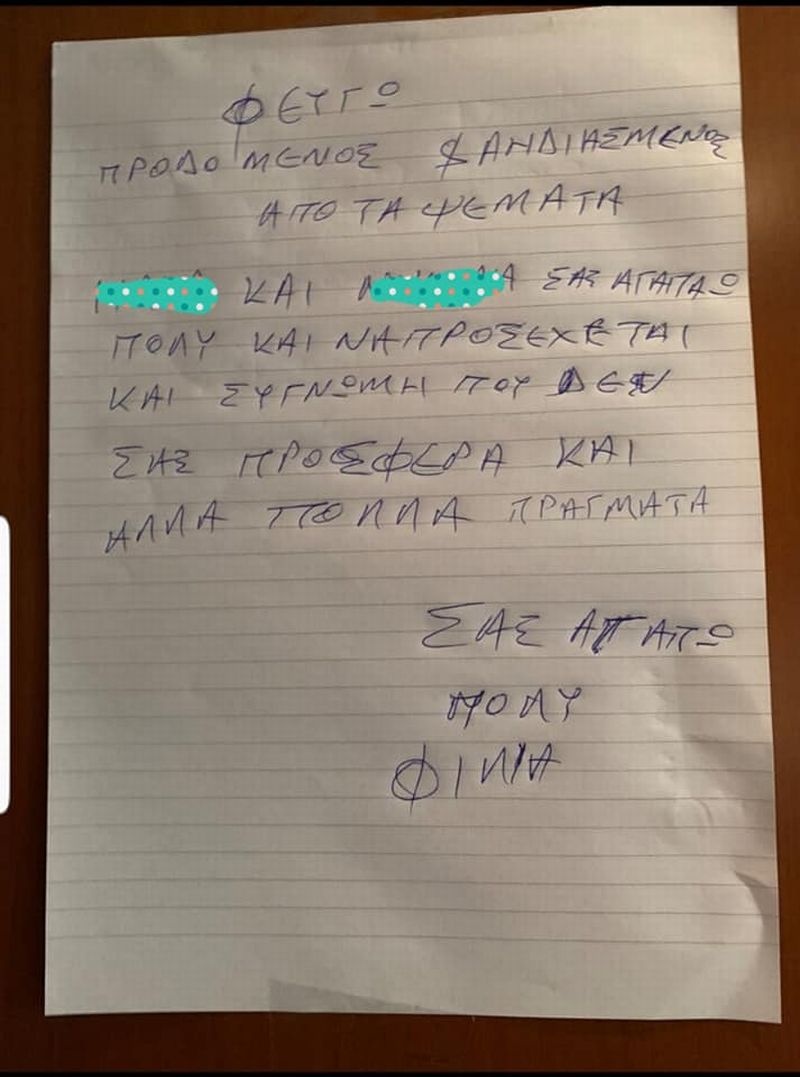 ΦΕΥΓΩ
ΠΡΟΔΟΜΕΝΟΣ ΞΑΗΔΙΑΣΜΕΝΟΣ
ΑΠΟ ΤΑ ΨΕΜΑΤΑ
ΚΑΙ ΣΑΣ ΑΓΑΠΑΩ
ΠΟΛΥ ΚΑΙ ΝΑ ΠΡΟΣΕΧΕΤΑΙ
ΚΑΙ ΣΥΓΝΩΜΗ ΠΟΥ ΔΕΝ
ΣΑΣ ΠΡΟΣΦΕΡΑ ΚΑΙ
ΑΛΛΑ ΠΟΛΛΑ ΠΡΑΓΜΑΤΑ
ΣΑΣ ΑΓΑΠΩ
ΠΟΛΥ
ΦΙΛΙΑ